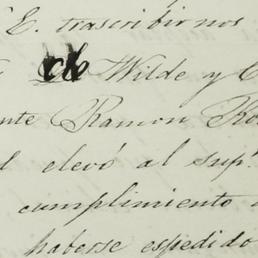 E. trascribirnos
Wilde y C
nte Ramon Ro
l elevó al sup.
cumplimiento
haberse espedido